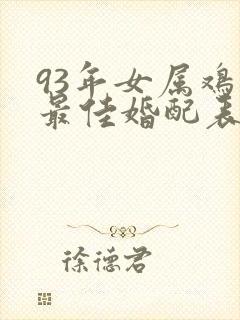 93年女属鸡
最佳婚配表
徐德君